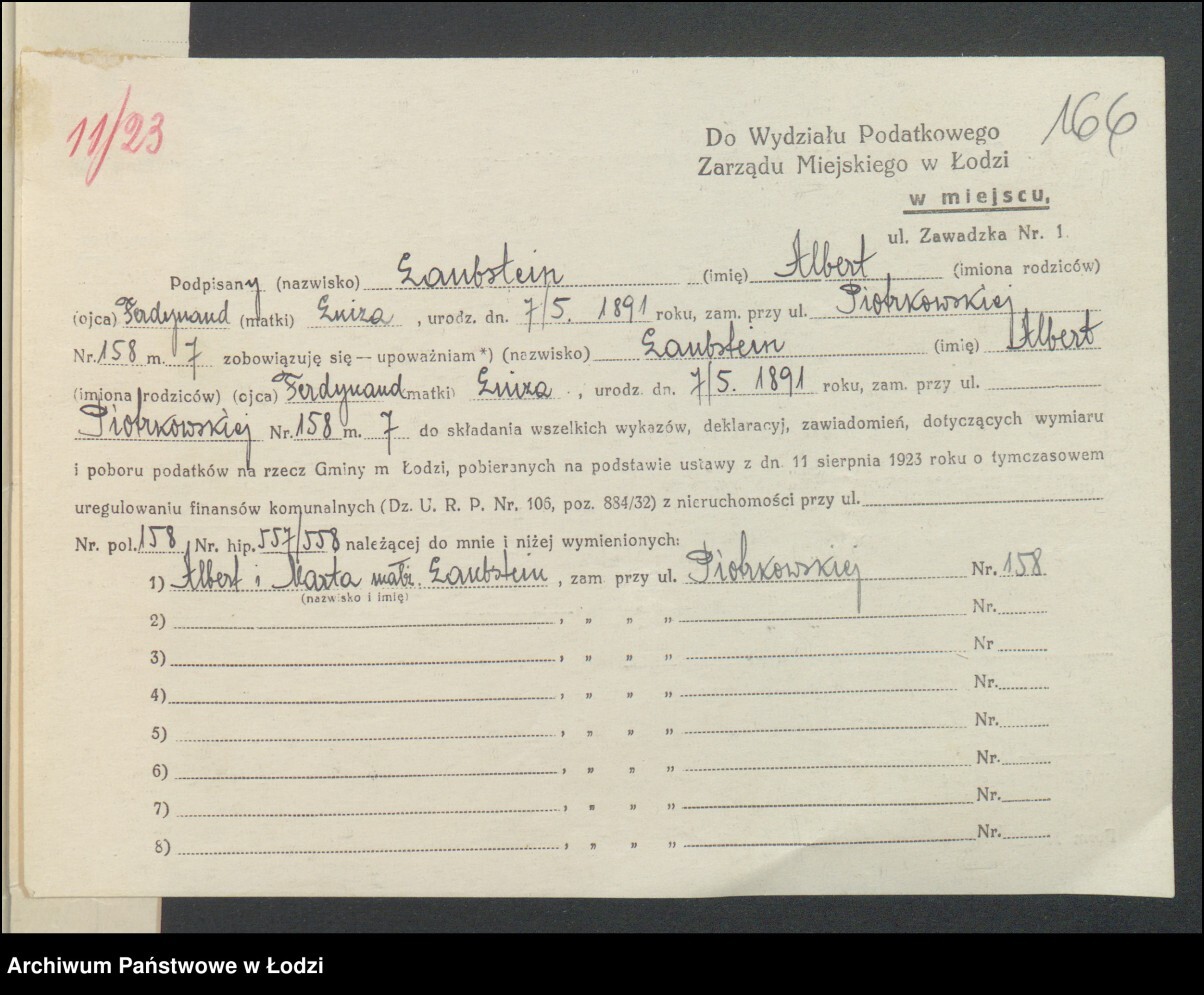 11/23
166
Do Wydziału Podatkowego
Zarządu Miejskiego w Łodzi
w miejscu,
ul. Zawadzka Nr. 1
Podpisany (nazwisko) Laubstein (imię) Albert (imiona rodziców)
(ojca) Ferdynand (matki) Luiza, urodz. dn. 7/5. 1891 roku, zam. przy ul. Piotrkowskiej
Nr. 158 m. 7 zobowiązuję się — upoważniam*) (nazwisko) Laubstein (imię) Albert
(imiona rodziców) (ojca) Ferdynand matki) Luiza, urodz. dn. 7/5. 1891 roku, zam. przy ul.
Piotrkowskiej Nr. 158 m. 7 do składania wszelkich wykazów, deklaracyj, zawiadomień, dotyczących wymiaru
i poboru podatków na rzecz Gminy m Łodzi, pobieranych na podstawie ustawy z dn. 11 sierpnia 1923 roku o tymczasowem
uregulowaniu finansów komunalnych (Dz. U. R. P. Nr. 106, poz. 884/32) z nieruchomości przy ul.
Nr. pol. 158 Nr. hip. 557/558 należącej do mnie i niżej wymienionych:
1) Albert i Marta małż. Laubstein, zam przy ul. Piotrkowskiej Nr. 158
(nazwisko i imię)
2) , „ „ „ Nr.
3) , „ „ „ Nr
4) , „ „ „ Nr.
5) , „ „ „ Nr.
6) , „ „ „ Nr.
7) , „ „ „ Nr.
8) , „ „ „ Nr.
Archiwum Państwowe w Łodzi